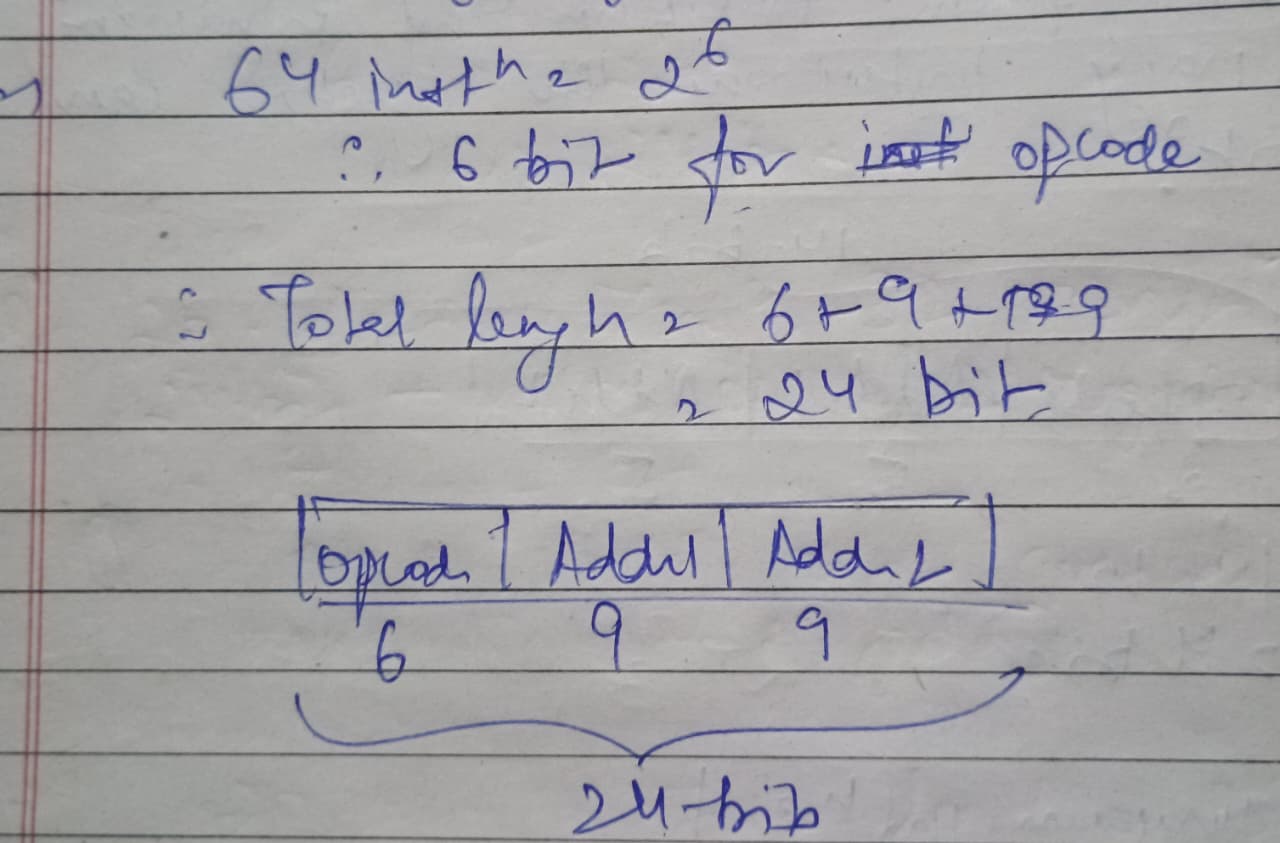 64 instⁿ = 2⁶
∴ 6 bit for opcode
∴ Total lengh = 6 + 9 + 9
= 24 bit
Opcod Addr1 Addr2
6 9 9
24-bit